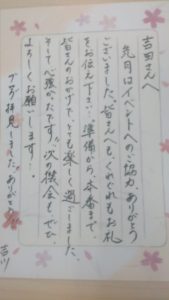 吉田さんへ
先月はイベントへのご協力、ありがとう
ございました。皆さんへも、くれぐれもお礼
をお伝え下さい。準備から、本番まで、
皆さんのおかげで、とても楽しく過ごしました。
そして心強かったです。次の機会もぜひ
よろしくお願いします!!
ブログ拝見しました。ありがとう
吉川